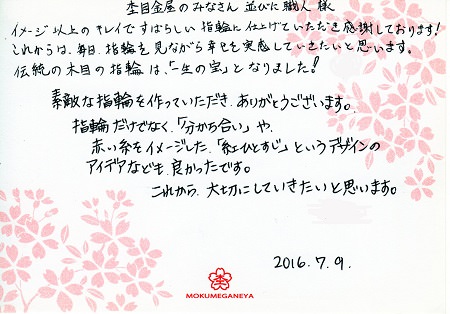 杢目金屋のみなさん 並びに 職人 様
イメージ以上のキレイですばらしい 指輪に仕上げていただき 感謝しております!
これからは、毎日、指輪を見ながら 幸せを実感していきたいと思います。
伝統の木目の指輪は、「一生の宝」となりました!
素敵な指輪を作っていただき、ありがとうございます。
指輪だけでなく、「分かち合い」や、
赤い糸をイメージした、「紅ひとすじ」というデザインの
アイデアなども 良かったです。
これから、大切にしていきたいと思います。
2016.7.9.
MOKUMEGANEYA